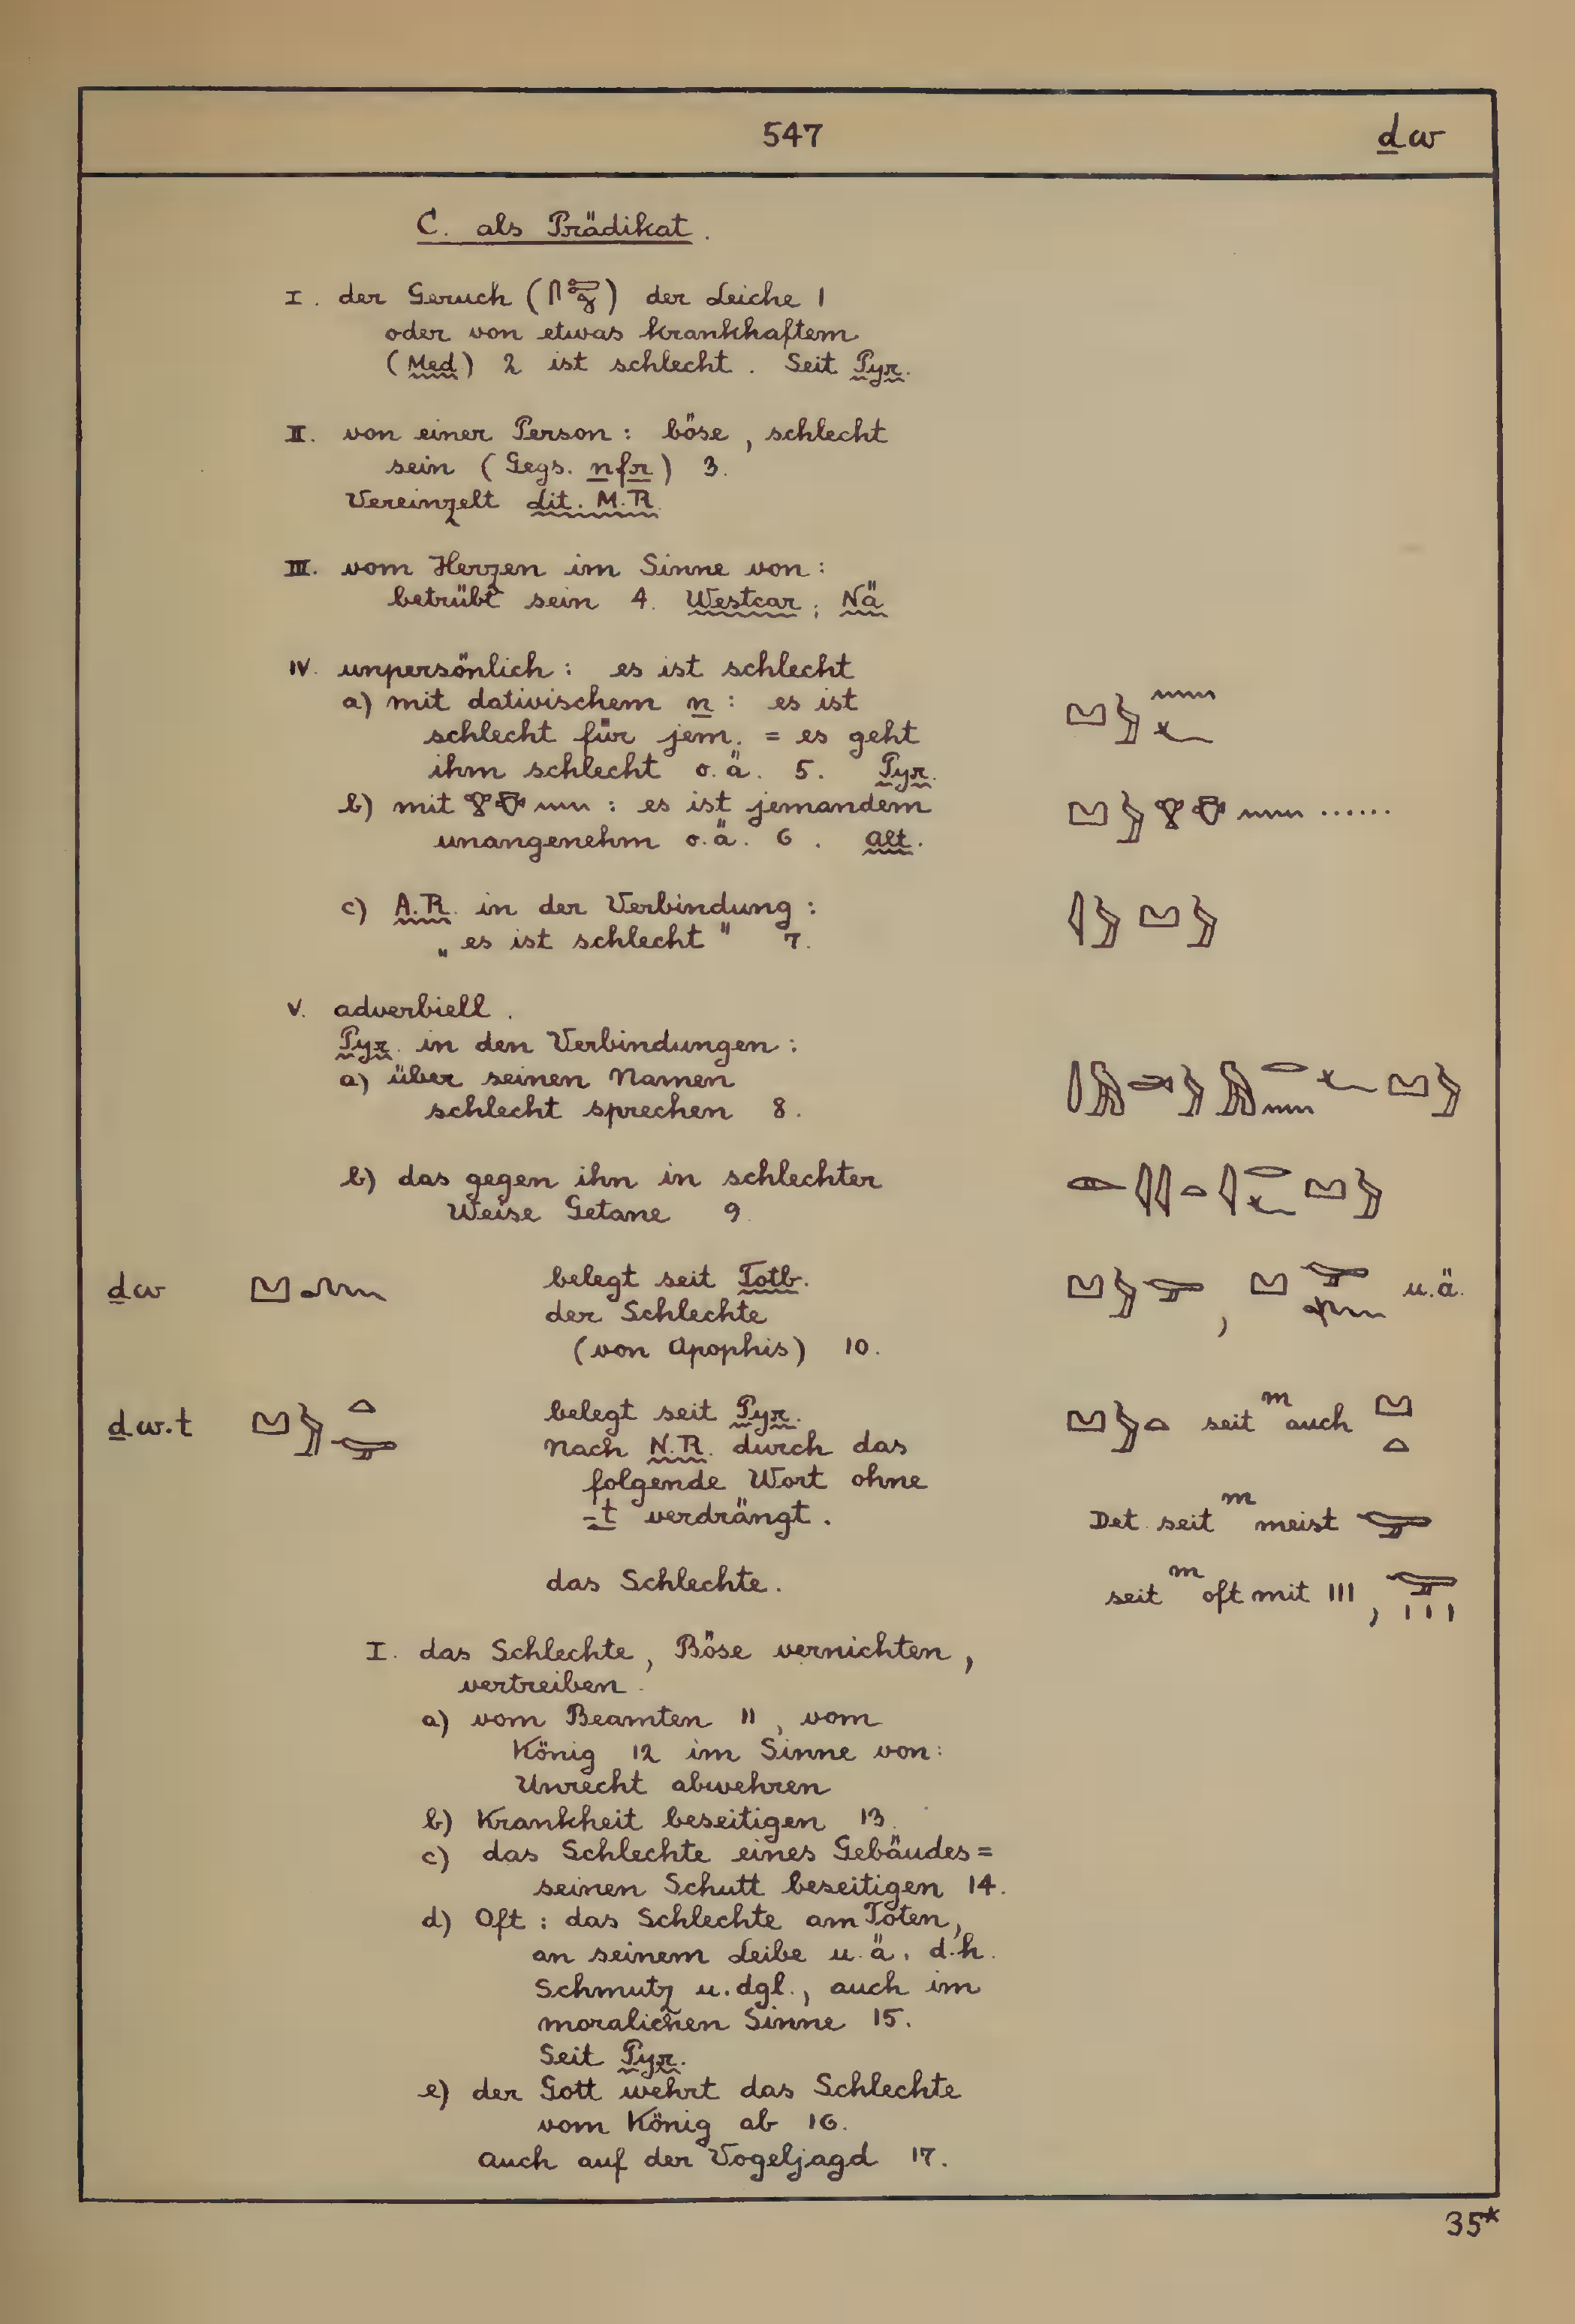 547 ḏw
C. als Prädikat.
I. der Geruch () der Leiche 1
oder von etwas krankhaftem
(Med) 2 ist schlecht. Seit Pyr.
II. von einer Person: böse, schlecht
sein (Gegs. nfr) 3.
Vereinzelt Lit. M.R.
III. vom Herzen im Sinne von:
betrübt sein 4. Westcar; Nä
IV. unpersönlich: es ist schlecht
a) mit dativischem n: es ist
schlecht für jem. = es geht
ihm schlecht o.ä. 5. Pyr.
b) mit : es ist jemandem ......
unangenehm o.ä. 6. Alt.
c) A.R. in der Verbindung:
„es ist schlecht" 7.
V. adverbiell.
Pyr. in den Verbindungen:
a) über seinen Namen
schlecht sprechen 8.
b) das gegen ihn in schlechter
Weise Getane 9.
ḏw belegt seit Totb. , u.ä.
der Schlechte
(von Apophis) 10.
ḏw.t belegt seit Pyr. seit m auch
Nach N.R. durch das
folgende Wort ohne
-t verdrängt. Det. seit m meist
das Schlechte. seit m oft mit III,
I. das Schlechte, Böse vernichten,
vertreiben.
a) vom Beamten 11, vom
König 12 im Sinne von:
Unrecht abwehren
b) Krankheit beseitigen 13.
c) das Schlechte eines Gebäudes =
seinen Schutt beseitigen 14.
d) Oft: das Schlechte am Toten,
an seinem Leibe u.ä. d.h.
Schmutz u.dgl., auch im
moralichen Sinne 15.
Seit Pyr.
e) der Gott wehrt das Schlechte
vom König ab 16.
Auch auf der Vogeljagd 17.
35*